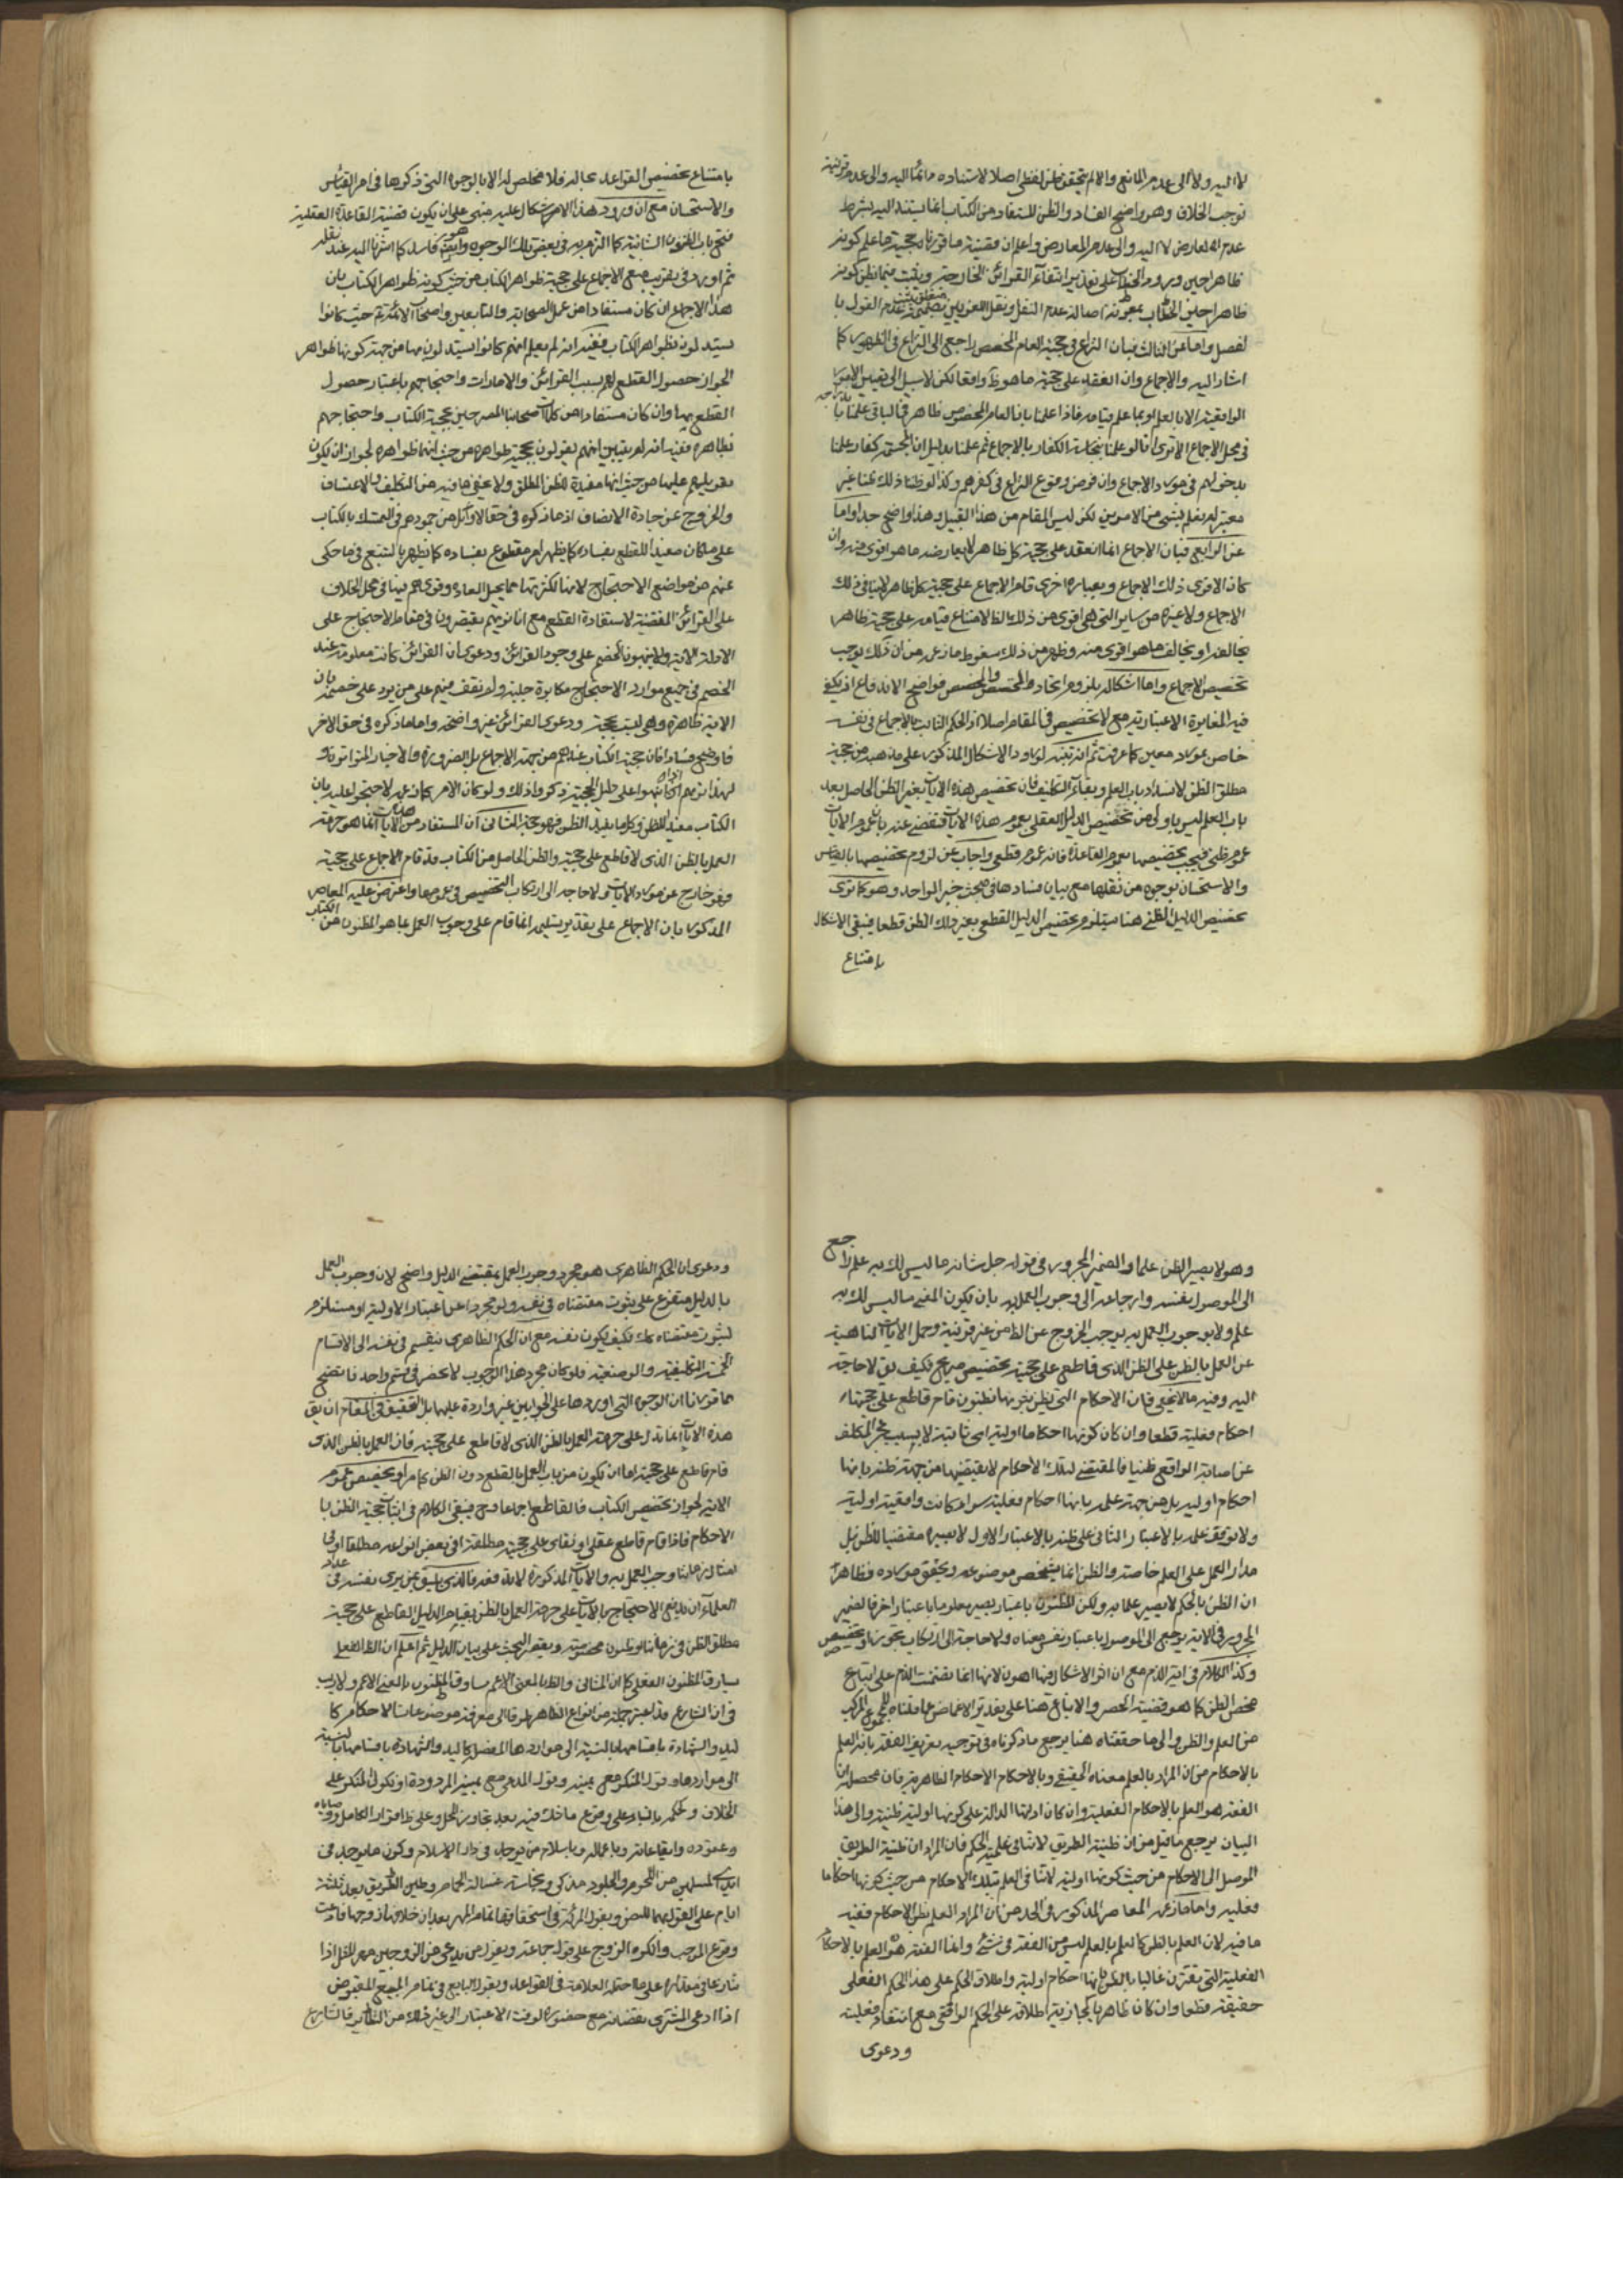 لا اليه ولا الى عدم المانع والا لم يتحقق ظن لفظى اصلا لاستناده دائما اليه والى عدم قرينة
توجب الخلاف وهو واضح الفساد والظن المستفاد من الكتاب انما يستند اليه بشرط
عدم المعارض لا اليه والى عدم المعارض واعلم ان قضية ما قررناه حجية ما علم كونه
ظاهرا حين ورود الخطاب على تقدير انتفاء القرائن الخارجية ويثبت فيما يظن كونه
ظاهرا حين الخطاب بمعونة اصالة عدم النقل ونقل اللغويين بضميمة عدم القول با
لفصل واما عن الثالث فبان النزاع فى حجية العام المخصص راجع الى النزاع فى الظهور كما
اشار اليه والاجماع وان انعقد على حجية ما هو ظاهر واقعا لكن لا سبيل الى تعيين الامور
الواقعية الا بالعلم او بما علم قيامه فاذا علمنا بان العام المخصص ظاهر فى الباقى علمنا
فى محل الاجماع الا ترى انا لو علمنا بنجاسة الكفار بالاجماع ثم علمنا بدليل ان المجسمة كفار علمنا
بدخولهم فى مورد الاجماع وان فرض وقوع النزاع فى كفرهم وكذا لو ظننا ذلك ظنا غير
معتبر لم نعلم بشىء من الامرين لكن ليس المقام من هذا القبيل وهذا واضح جدا واما
عن الرابع فبان الاجماع انما انعقد على حجية كل ظاهر لا يعارضه ما هو اقوى منه وان
كان الاقوى ذلك الاجماع وبعبارة اخرى قام الاجماع على حجية كل ظاهر لا ينافى ذلك
الاجماع ولا غيره من ساير التى هى اقوى من ذلك الظاهر لامتناع قيامه على حجية ظاهر
يخالفه او يخالف ما هو اقوى منه وظهر من ذلك سقوط ما زعمه من ان ذلك يوجب
تخصيص الاجماع واما اشكاله بلزوم اتحاد المخصص والمخصص فواضح الاندفاع اذ يكفى
فيه المغايرة الاعتبارية مع لا تخصيص فى المقام اصلا اذ الحكم الثابت بالاجماع فى نفسه
خاص بمورد معين كما عرفت ثم انه تنبه لورود الاشكال المذكور على مذهبه من حجية
مطلق الظن لانسداد باب العلم وبقاء التكليف فان تخصيص هذه الايات بغير الظن الحاصل بعد
باب العلم ليس باولى من تخصيص الدليل العقلى بعموم هذه الايات فتفصى عنه بان عموم الايات
عموم ظنى فيجب تخصيصها بعموم القاعدة فانه عموم قطعى واجاب عن لزوم تخصيصها بالقياس
والاستحسان بوجوه من نقلها مع بيان فسادها فى مبحث خبر الواحد وهو كما ترى
تخصيص الدليل الظنى هنا يستلزم تخصيص الدليل القطعى بغير ذلك الظن قطعا فيبقى الاشكال
بامتناع
بامتناع تخصيص القواعد بحاله فلا مخلص له الا بالوجوه التى ذكروها فى امر القياس
والاستحسان مع ان ورود هذا الاشكال عليه مبنى على ان يكون قضية القاعدة العقلية
فتح باب الظنون الشانية كما التزم به فى بعض تلك الوجوه وهو ايضا فاسد كما اشرنا اليه عند نقله
ثم اورد فى تقريب منع الاجماع على حجية ظواهر الكتاب من حيث كونه ظواهر الكتاب بان
هذا الاجماع ان كان مستفادا من عمل الصحابة والتابعين واصحاب الائمة حيث كانوا
يستدلون بظواهر الكتاب ففيه انه لم يعلم انهم كانوا يستدلون بها من جهة كونها ظواهر
لجواز حصول القطع لهم بسبب القرائن والامارات واحتجاجهم باعتبار حصول
القطع بها وان كان مستفادا من كلمات اصحابنا المصرحين بحجية الكتاب واحتجاجهم
بظاهره ففيه انه لم يتبين انهم يقولون بحجية ظواهره من حيث انها ظواهره لجواز ان يكون
تعويلهم عليها من حيث انها مفيدة للظن المطلق ولا يخفى ما فيه من التكلف والاعتساف
والخروج عن جادة الانصاف اذ ما ذكره فى حق الاوائل من جمودهم فى التمسك بالكتاب
على ما كان مفيدا للقطع بفساده كما يظهر امر مقطوع بفساده كما يظهر بالتتبع فى ما حكى
عنهم من مواضع الاحتجاج لانها لكثرتها مما يحيل العادة وقوفهم فيها فى محل الخلاف
على القرائن المقتضية لاستفادة القطع مع انا نريهم يقتصرون فى مقام الاحتجاج على
الادلة الاية ولا ينبهون الخصم على وجود القرائن ودعوى ان القرائن كانت معلومة عند
الخصم فى جميع موارد الاحتجاج مكابرة جلية ولم نقف منهم على من يرد على خصمه بان
الاية ظاهرة وهى ليست بحجة ودعوى القرائن غير واضحة واما ما ذكره فى حق الاخر
فاوضح فسادا فان حجية الكتاب عندهم من جهة الاجماع بل الضرورة والاخبار المتواترة
لهذا تريهم اذا نبهوا على دليل الحجية ذكروا ذلك ولو كان الامر كما زعمه لاحتجوا عليه بان
الكتاب مفيد للظن وكل ما يفيد الظن فهو حجة الثانى ان المستفاد من هذه الايات انما هو حرمة
العمل بالظن الذى لا قاطع على حجيته والظن الحاصل من الكتاب قد قام الاجماع على حجيته
فهو خارج عن مورد الايات ولا حاجة الى ارتكاب التخصيص فى عمومها واعترض عليه المعاصر
المذكور بان الاجماع على تقدير تسليمه انما قام على وجوب العمل بما هو المظنون من الكتاب
وهو لا يصير الظن علما والضمير المجرور فى قوله جل شانه ما ليس لك به علم راجع
الى الموصول بنفسه وارجاعه الى وجوب العمل به بان يكون المعنى ما ليس لك به
علم ولا بوجوب العمل به يوجب الخروج عن الظاهر من غير قرينة وحمل الايات الناهية
عن العمل بالظن على الظن الذى قاطع على حجيته تخصيص صريح فكيف يق لا حاجة
اليه وفيه ما لا يخفى فان الاحكام التى يظن بثبوتها بظنون قام قاطع على حجيتها
احكام فعلية قطعا وان كان كونها احكاما اولية اى ثابتة لا بسبب عجز المكلف
عن اصابة الواقع ظنيا فالمقتضى لتلك الاحكام لا يقتضيها من جهة ظنه بانها
احكام اولية بل من جهة علمه بانها احكام فعلية سواء كانت واقعية اولية
ولا توقف علمه بالاعتبار الثانى على ظنه بالاعتبار الاول لا يصيره مقتضيا للظن بل
مدار العمل على العلم خاصة والظن انما يشخص موضوعه ويحقق مورده وظاهر
ان الظن بالحكم لا يصير علما به ولكن المظنون باعتبار يصير معلوما باعتبار اخر فالضمير
المجرور فى الاية يرجع الى الموصول باعتبار نفس معناه ولا حاجة الى ارتكاب تجوز او تخصيص
وكذا الكلام فى اية الذم مع ان اثر الاشكال فيها اهون لانها انما تضمنت الذم على اتباع
محض الظن كما هو قضية الحصر والاتباع هنا على تقدير الاغماض عما قلناه للمجموع المركب
من العلم والظن والى ما حققناه هنا يرجع ما ذكرناه فى توجيه تعريف الفقه بانه العلم
بالاحكام من ان المراد بالعلم معناه الحقيقى وبالاحكام الاحكام الظاهرية فان محصله ان
الفقه هو العلم بالاحكام الفعلية وان كان ادلتها الدالة على كونها اولية ظنية والى هذا
البيان يرجع ما قيل من ان ظنية الطريق لا تنافى علمية الحكم فان المراد ان ظنية الطريق
الموصل الى الاحكام من حيث كونها اولية لا تنافى العلم بتلك الاحكام من حيث كونها احكاما
فعلية واما ما زعمه المعاصر المذكور فى الحد من ان المراد العلم بظن الاحكام ففيه
ما فيه لان العلم بالظن كالعلم بالعلم ليس من الفقه فى شىء وانما الفقه هو العلم بالاحكام
الفعلية التى يقترن غالبا بالظن بانها احكام اولية واطلاق الحكم على هذا الحكم الفعلى
حقيقة قطعا وان كان ظاهريا كمجازية اطلاقه على الحكم الواقعى مع انتفاء فعليته
ودعوى
ودعوى ان الحكم الظاهرى هو مجرد وجوب العمل بمقتضى الدليل واضح لان وجوب العمل
بالدليل متفرع على ثبوت مقتضاه فى نفسه ولو مجردا عن اعتبار الاولية او مستلزم
لثبوت مقتضاه كك فكيف يكون نفسه مع ان الحكم الظاهرى ينقسم فى نفسه الى الاقسام
الخمسة التكليفية والوضعية فلو كان مجرد هذا الوجوب لانحصر فى قسم واحد فاتضح
مما قررنا ان الوجوه التى اوردها على الجوابين غير واردة عليهما بل التحقيق فى المقام ان يق
هذه الايات انما تدل على حرمة العمل بالظن الذى لا قاطع على حجيته فان العمل بالظن الذى
قام قاطع على حجيته اما ان يكون من باب العمل بالقطع دون الظن كما مر او تخصيص عموم
الاية لجواز تخصيص الكتاب فالقاطع اجماعا وح فيبقى الكلام فى اثبات حجية الظن با
الاحكام فاذا قام قاطع عقلى او نقلى على حجيته مطلقا او فى بعض انواعه مطلقا او فى
امثال زماننا وجب العمل به والايات المذكورة لا تدفعه فالذى يليق بمن يرى نفسه فى عداد
العلماء ان يدفع الاحتجاج بالايات على حرمة العمل بالظن بقيام الدليل القاطع على حجية
مطلق الظن فى زماننا او ظنون مخصوصة ويقصر البحث على بيان الدليل ثم اعلم ان الظاهر الفعلى
يساوق المظنون الفعلى كما ان الشانى والظاهر بالمعنى الاعم يساوق المظنون بالمعنى الاعم ولا ريب
فى ان الشارع قد اعتبر جملة من انواع الظاهر طرقا الى معرفة موضوعات الاحكام كا
ليد والشهادة باقسامها بالنسبة الى مواردها المفصلة كاليد والشهادة باقسامها بالنسبة
الى مواردها وقول المنكر مع يمينه وقول المدعى مع يمينه المردودة او نكول المنكر على
الخلاف وكحكم بالبناء على وقوع ما شك فيه بعد تجاوز المحل وعلى ظاهر اقرار الكامل ووصاياه
وعقوده وايقاعاته وباعماله وباسلام من يوجد فى دار الاسلام وكون ما يوجد فى
ايدى المسلمين من اللحوم والجلود مذكى ونجاسة غسالة الحمام وطين الطريق بعد ثلثة
ايام على القول بهما للنص وبقول المرئة فى استحقاقها تمام المهر بعد ان خلا بها زوجها فادعت
وقوع الموجب وانكره الزوج على قول جماعة وبقول من يدعى من الزوجين مهر المثل اذا
تنازعا فى مقداره على ما احتمله العلامة فى القواعد وبقول البايع فى تمام المبيع المقبوض
اذا ادعى المشترى نقصانه مع حضوره لوقت الاعتبار الى غير ذلك من النظاير فالشارع